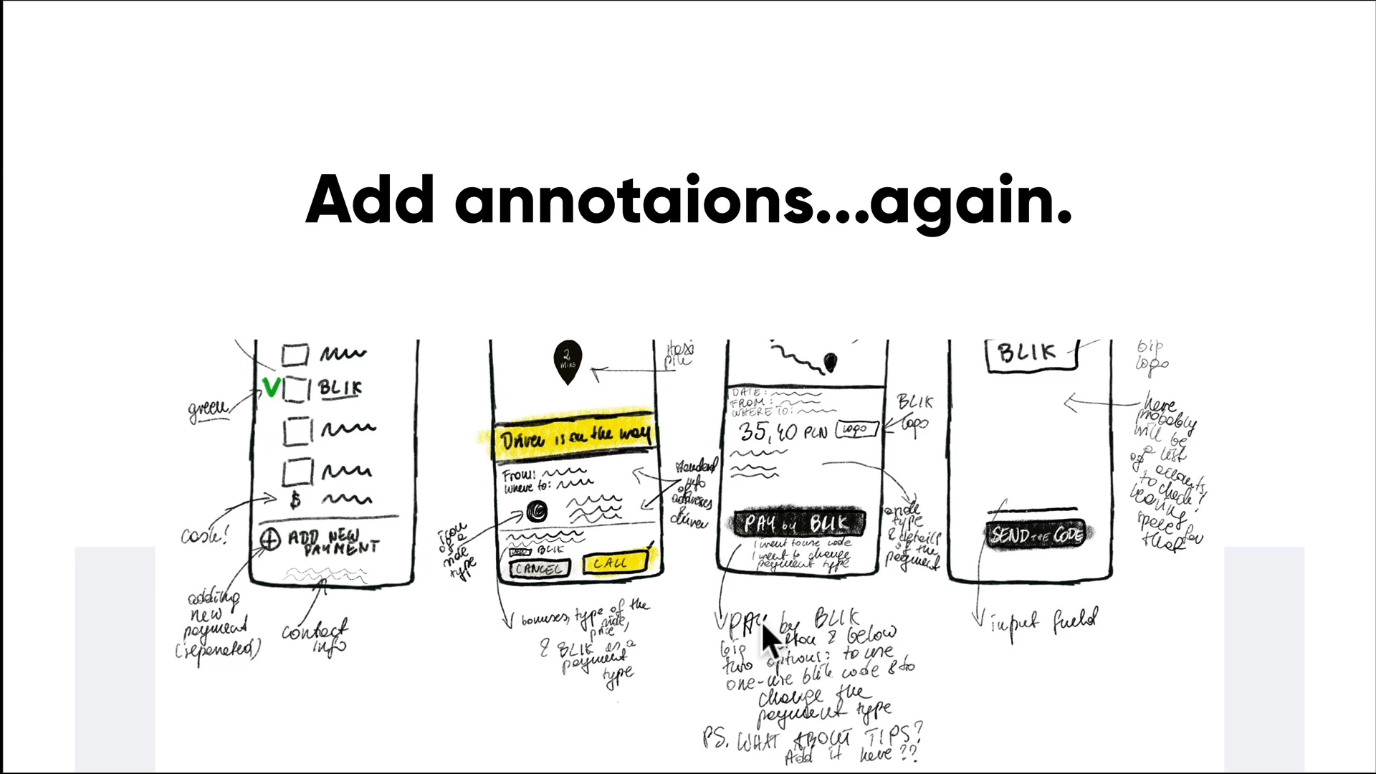 Add annotaions...again.
green
V
BLIK
$
cash!
ADD NEW
PAYMENT
adding
new
payment
(separated)
contact
info
2
MINS
taxi
pin
Driver is on the way
From:
Where to:
standard
info
of
address
&
driver
icon
of a
ride
type
BLIK
CANCEL
CALL
bonuses, type of the
ride,
price,
& BLIK as a
payment
type
DATE:
FROM:
WHERE TO:
35,40 PLN
LOGO
BLIK
logo
PAY by BLIK
I want to use code
I want to change
payment type
ride
type
& details
of the
payment
PAY by BLIK
big
& below
two options: to use
one-use blik code & to
change the
payment type
PS. WHAT ABOUT TIPS?
Add it here??
BLIK
big
logo
here
probably
will be
a list
of accounts
to check!
leaving
space for
that
SEND THE CODE
input field